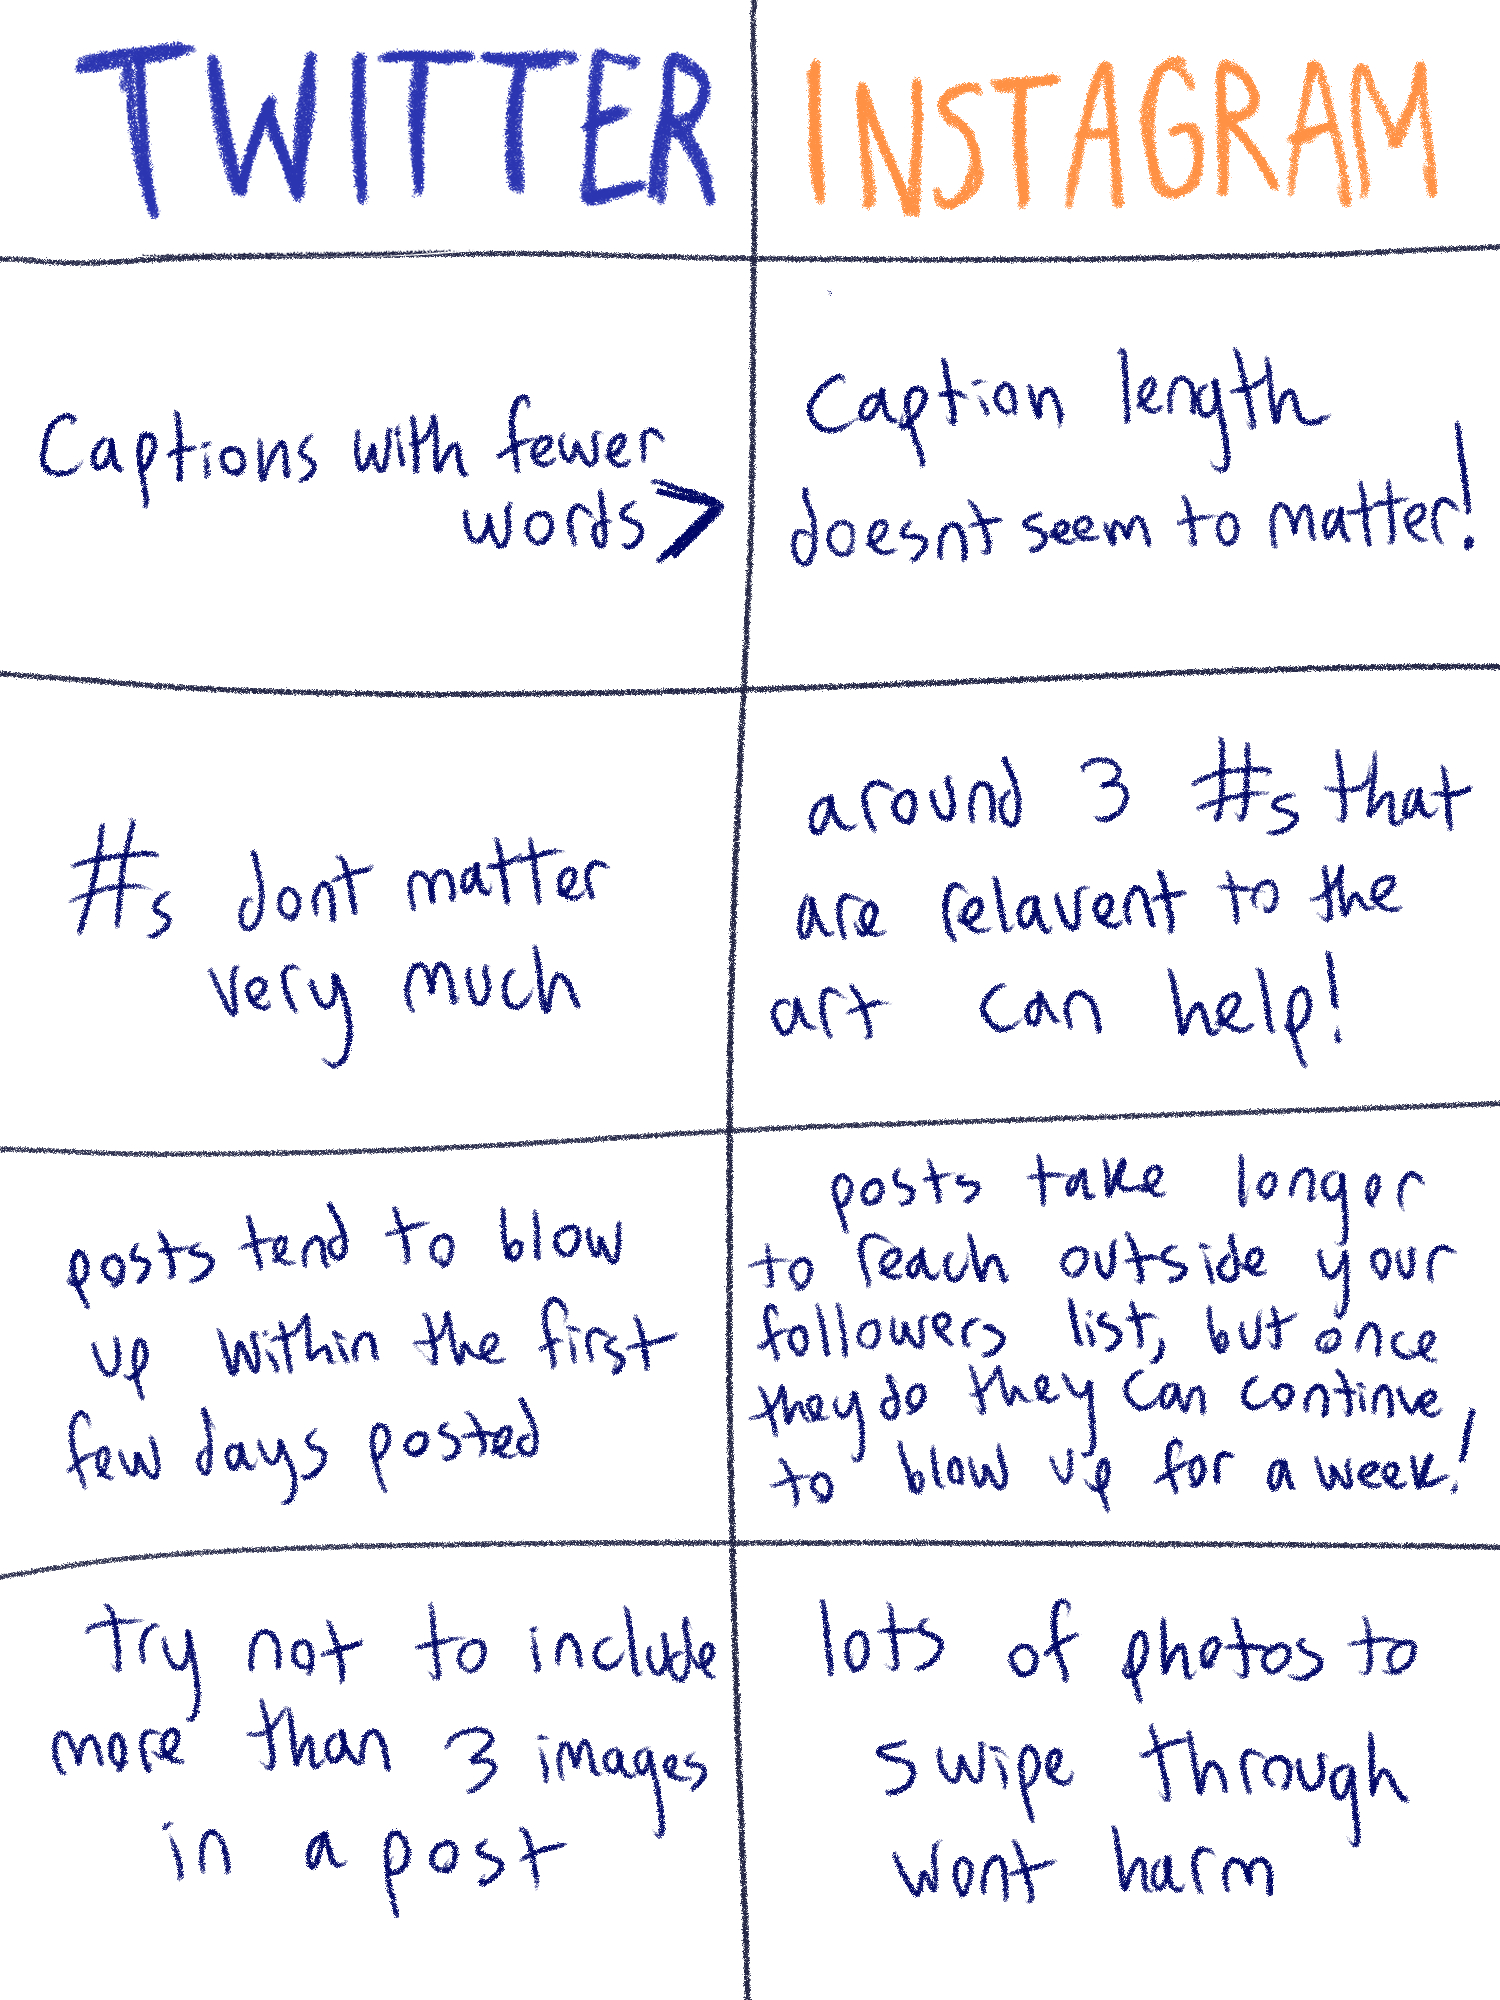 TWITTER
INSTAGRAM
Captions with fewer
words >
Caption length
doesnt seem to matter!
#s dont matter
very much
around 3 #s that
are relavent to the
art can help!
posts tend to blow
up within the first
few days posted
posts take longer
to reach outside your
followers list, but once
they do they can continue
to blow up for a week!
try not to include
more than 3 images
in a post
lots of photos to
swipe through
wont harm